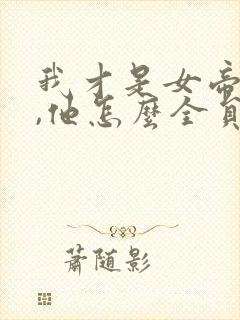 我才是女帝
,他怎麼全員
蕭随影